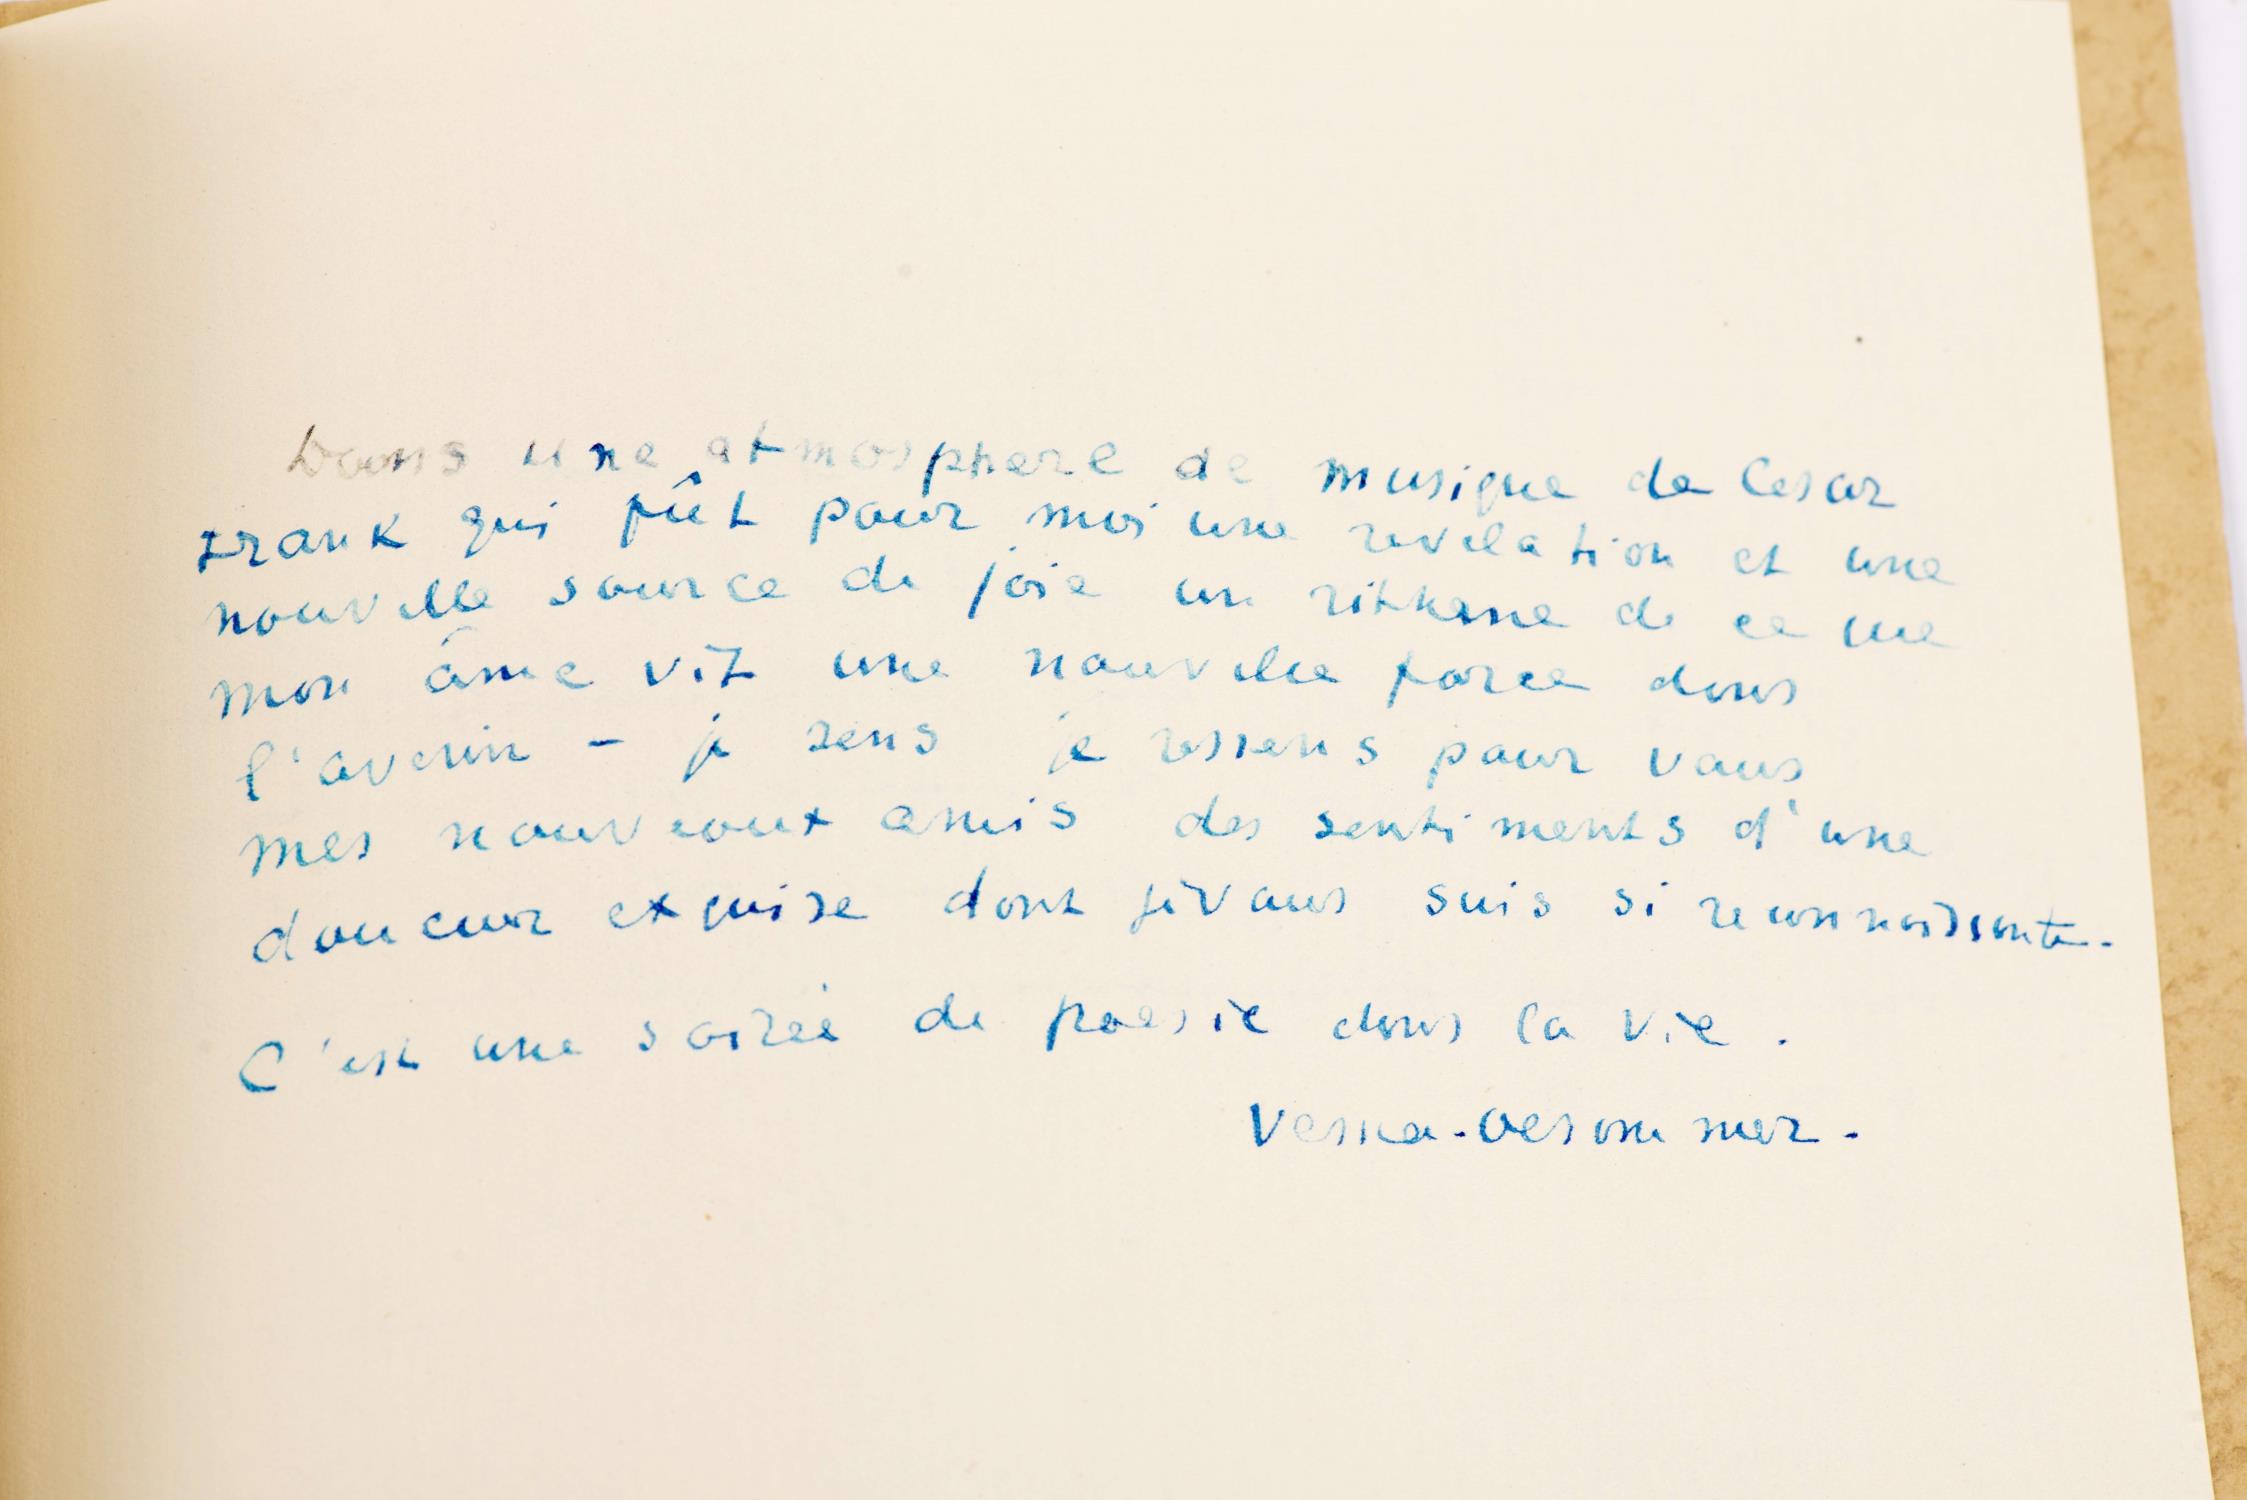 Dans une atmosphere de musique de Cesar
Frank qui fût pour moi une revelation et une
nouvelle source de joie un rithme de ce
mon âme vit une nouvelle force dans
l'avenir - je sens je ressens pour vous
mes nouveaux amis des sentiments d'une
douceur exquise dont je vous suis si reconnaissante.
C'est une soirée de poesie dans la vie.